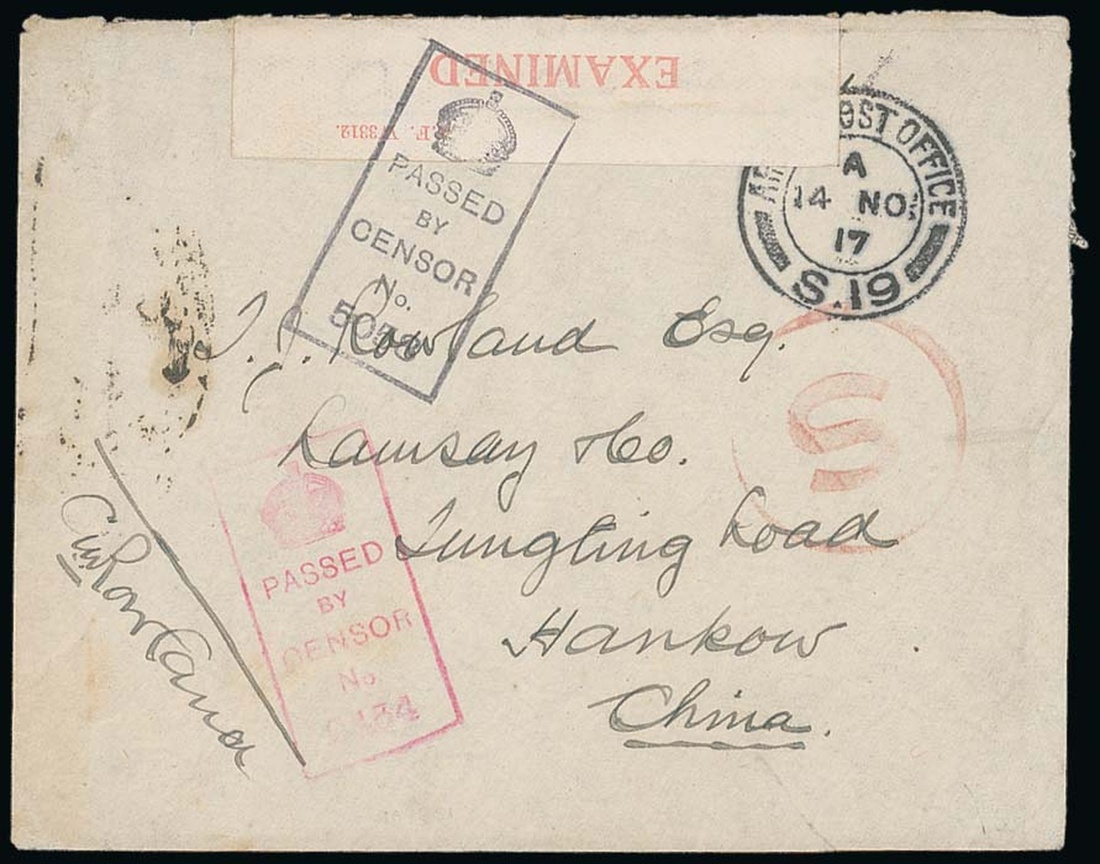 EXAMINED
PASSED
BY
CENSOR
No.
POST OFFICE
A
14 NO
17
S.19
Rowland Esq.
Ramsay & Co.
Tungting Road
Hankow
China.
S
PASSED
BY
CENSOR
No.
Rowland